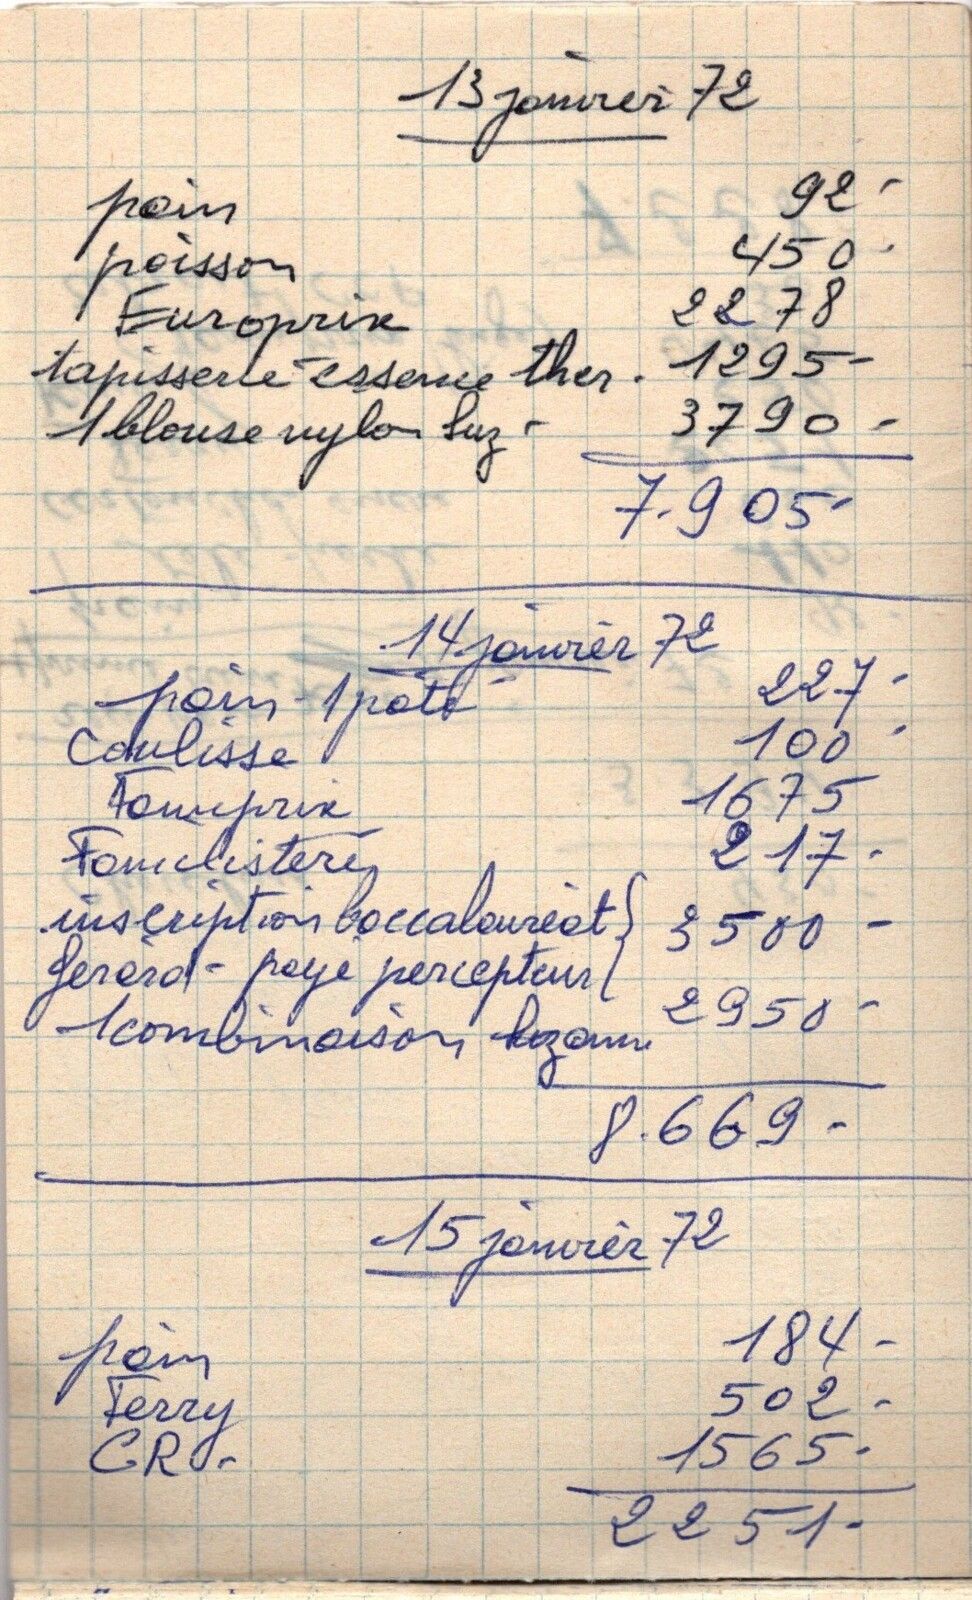 13 janvier 72
pain 92 -
poisson 450 -
Europrix 2278
tapisserie essence ther. 1295 -
1 blouse nylon Suz - 3790 -
7.905 -
14 janvier 72
pain - 1 pate 227 -
Coulisse 100 -
Famiprix 1675
Familistere 217 -
inscription baccalaureat } 3500 -
Gerard - paye percepteur }
1 combinaison Suzanne 2950 -
8.669 -
15 janvier 72
pain 184 -
Ferry 502 -
CR - 1565 -
2251 -